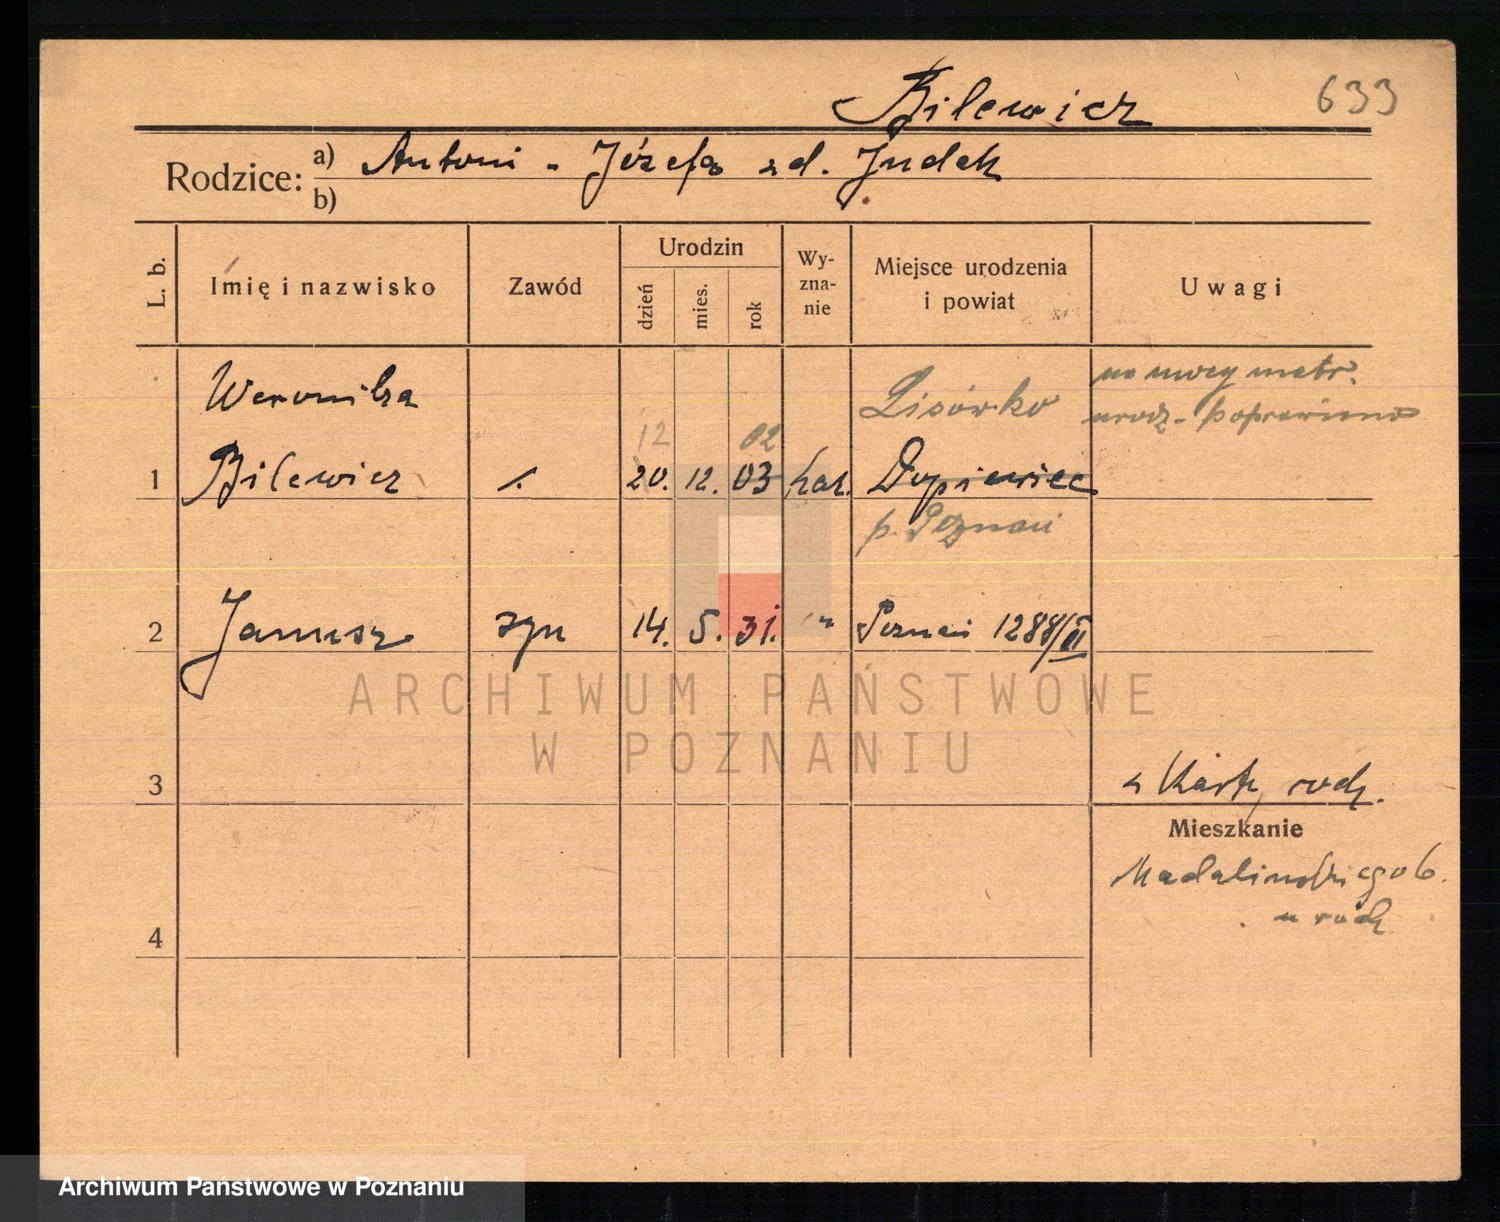 Bilewicz 633
Rodzice: a) Antoni - Józefa zd. Judek
b)
L. b.
Imię i nazwisko
Zawód
Urodzin
dzień
mies.
rok
Wy-
zna-
nie
Miejsce urodzenia
i powiat
Uwagi
Weronika
Lisówko
na mocy metr.
urodz. poprawiono
12 02
1 Bilewicz 20. 12. 03 kat. Dopiewiec
p. Poznań
2 Janusz syn 14. 5. 31. " Poznań 1288/II
ARCHIWUM PAŃSTWOWE
W POZNANIU
3
z Karty rodz.
Mieszkanie
Madalińskiego 6.
u rodz
4
Archiwum Państwowe w Poznaniu